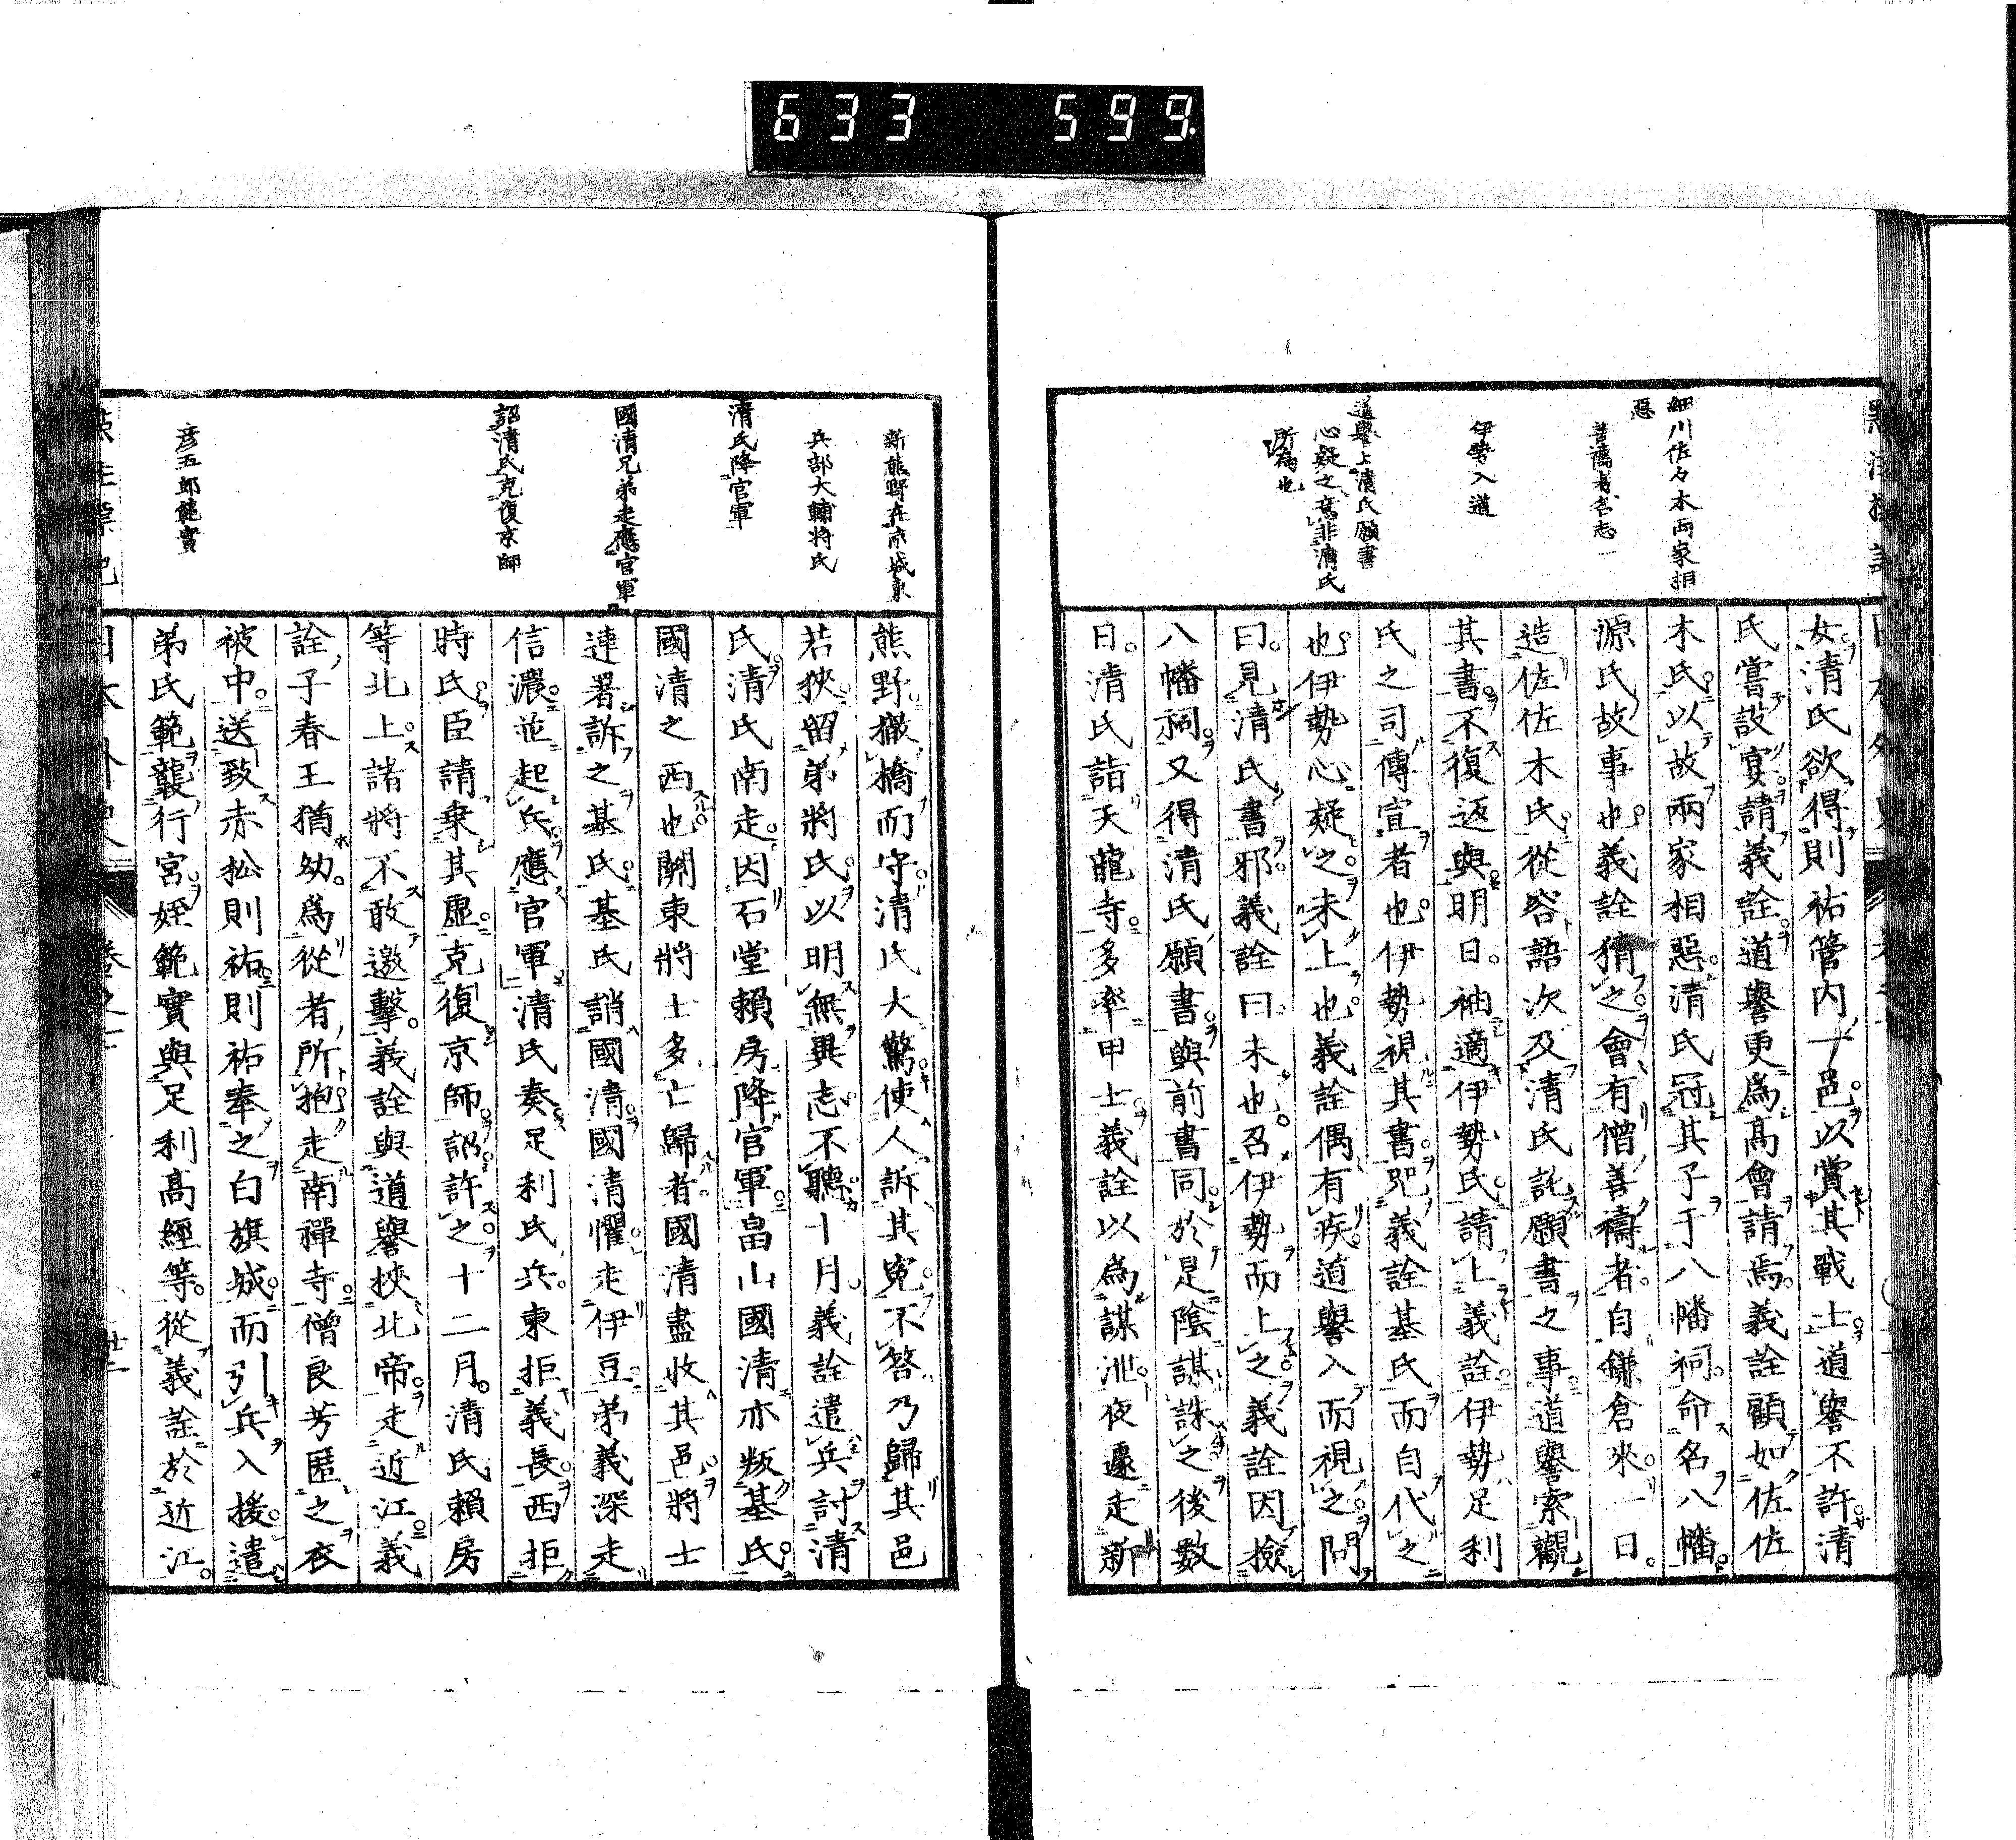 633 599
細川佐々木両家相
惡
善禱者名志一
伊勢入道
道譽上清氏願書
心疑之意非清氏
所為也
女。清氏欲得則祐管内一邑。以賞其戰士。道譽不許。清
氏嘗設宴。請義詮。道譽更爲髙會請焉。義詮顧如佐佐
木氏。以故兩家相惡。清氏冠其子于八幡祠。命名八幡。
源氏故事也。義詮猜之。會有僧善禱者。自鎌倉來。一日。
造佐佐木氏。從容語次及清氏託願書之事。道譽索觀
其書。不復返與。明日。袖適伊勢氏。請上義詮。伊勢足利
氏之司傳宣者也。伊勢視其書。咒義詮基氏而自代之
也。伊勢心疑之。未上也。義詮偶有疾。道譽入而視之。問
曰。見清氏書邪。義詮曰。未也。召伊勢而上之。義詮因撿
八幡祠。又得清氏願書。與前書同。於是陰謀誅之。後數
日。清氏詣天龍寺。多率甲士。義詮以爲謀泄。夜遽走新
新熊野在京城東
兵部大輔将氏
清氏降官軍
國清兄弟走應官軍
詔清氏克復京師
彦五郎範實
熊野。撤橋而守。清氏大驚。使人訴其寃。不答。乃歸其邑
若狹。留弟將氏。以明無異志。不聽。十月。義詮遣兵討清
氏。清氏南走。因石堂賴房降官軍。畠山國清亦叛基氏。
國清之西也。關東將士多亡歸者。國清盡收其邑。將士
連署訴之基氏。基氏誚國清。國清懼。走伊豆。弟義深走
信濃。並起兵應官軍。清氏奏。足利氏兵。東拒義長。西拒
時氏。臣請乗其虛。克復京師。詔許之。十二月。清氏賴房
等北上。諸將不敢邀擊。義詮與道譽挾北帝。走近江。義
詮子春王猶幼。爲從者所抱。走南禪寺。僧良芳匿之衣
被中。送致赤松則祐。則祐奉之白旗城。而引兵入援。遣
弟氏範襲行宮。姪範實與足利髙經等。從義詮於近江。